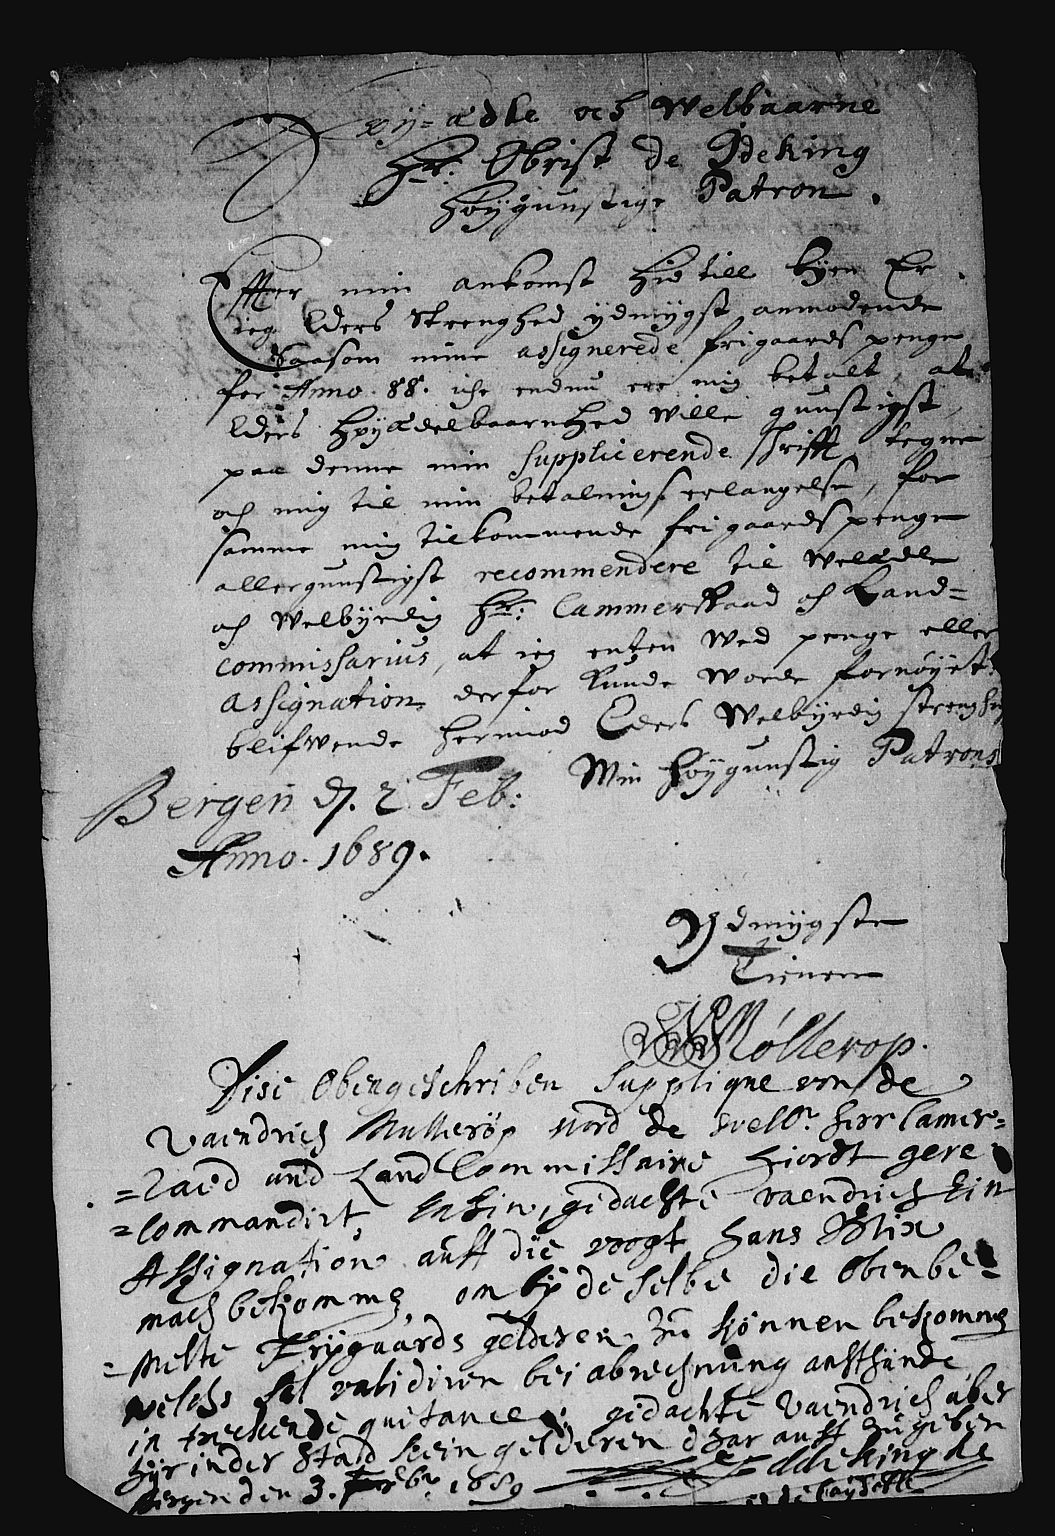 Høy-ædle och Welbaarne
Hr. Obrist de Ideking
Høygunstige Patron.
Effter min ankomst hid till byen Er
ieg Eders Strenghed ydmygst anmodende
Saasom mine assignerede frigaards penge
for Anno 88. iche endnu ere mig betalt, at
Eders Høyædelbaarnhed wille gunstigst,
paa denne min supplicerende skrifft tegne
och mig til min betalnings erlangelse, for
samme mig tilkommende frigaards penge
allergunstigst recommendere til Welædle
och Welbyrdig Hr: Cammerraad och Land=
commissarius, at ieg enten Wed penge eller
assignation derfor kunde worde fornøyet.
blifwende hermed Eders Welbyrdig strenghed
Min høygunstig Patrons
Bergen d. 2 Feb:
Anno. 1689.
Ydmygste
Tienere
Møllerop.
Dise Obengeschriben Supplique von de
Vaendrich Mullerøp word de well. herr Camer=
=raed und Land Commissaire Hiordt gere
=Commandirt, umb ein, gedachte vaendrich Ein
Assignation auff die voogt Hans Blix
mach bekomme, om by deselbe die Obenbe=
=melte Frygaards gelderen zu können bekomme
welchs sal validiren bei abrechnung auff
in quitance, gedachte Vaendrich aber
hyr in der Stad kein gelderen dhar auff zu geben
Bergen den 3. Feb. 1689